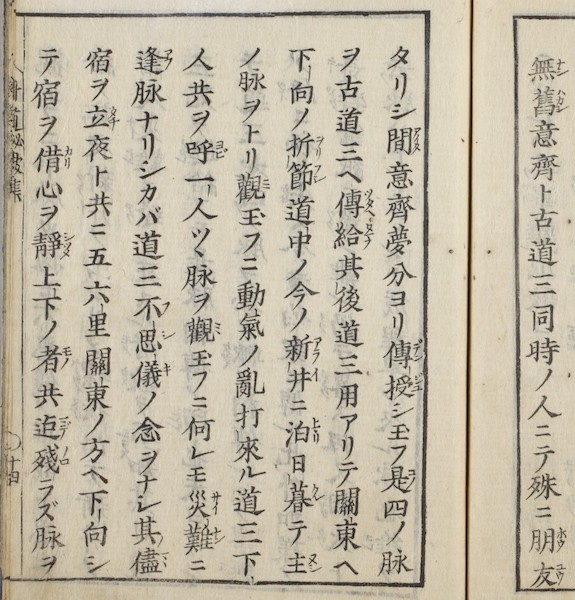 無舊意齊ト古道三同時ノ人ニテ殊ニ朋友
タリシ間意齊夢分ヨリ傳授シ玉フ是四ノ脉
ヲ古道三ヘ傳給其後道三用アリテ關東ヘ
下向ノ折節道中ノ今ノ新井ニ泊日暮テ主
ノ脉ヲトリ觀玉フニ動氣ノ亂打來ル道三下
人共ヲ呼一人ツヽ脉ヲ觀玉フニ何レモ災難ニ
逢脉ナリシカバ道三不思儀ノ念ヲナシ其儘
宿ヲ立夜ト共ニ五六里關東ノ方ヘ下向シ
テ宿ヲ借心ヲ靜上下ノ者共迠殘ラズ脉ヲ
十四